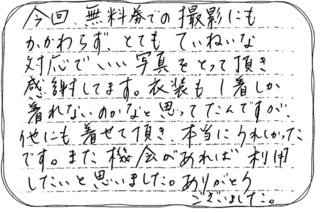 今回、無料券での撮影にも
かかわらず とても ていねいな
対応で いい 写真を とって頂き
感謝してます。衣装も 1着しか
着れないのかなと思ってたんですが、
他にも 着せて頂き、本当に うれしかった
です。また 機会があれば 利用
したいと思いました。ありがとう
ございました。